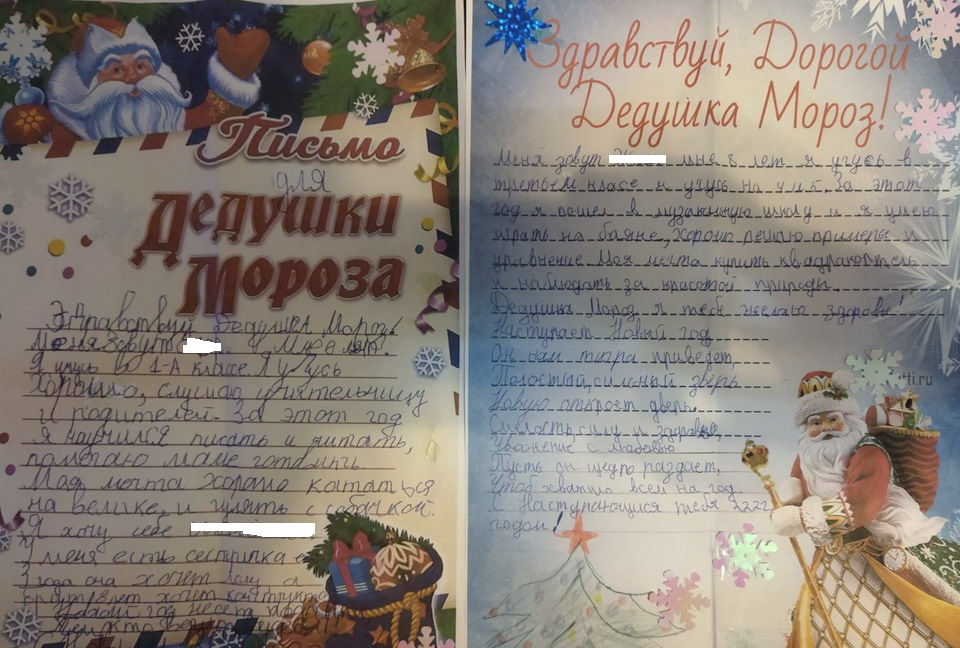 Письмо
для
Дедушки
Мороза
Здравствуй Дедушка Мороз!
Меня зовут
Я учусь во 1-А классе Я учусь
Хорошо, слушаю учительницу
и родителей. За этот год
я научился писать и читать,
помогаю маме готовить.
Моя мечта хорошо кататься
на велике, и гулять с собачкой.
Я хочу себе
У меня есть сестричка
3 года она хочет
хочет
Новый год несет
Здравствуй, Дорогой
Дедушка Мороз!
Меня зовут мне 8 лет я учусь в
третьем класе я учусь на За этот
год я пошел в музакльную школу и я умею
играть на баяне, хорошо решаю примеры и
уравнение Моя мечта купить квадракоптель
и наблюдать за красотой природы.
Дедушка Мороз я тебе желаю здровье!
Наступает Новый год
Он нам тигра приведет,
Полостый, сильный зверь
Новую откроет дверь.
Смелость, силу и здровье,
Уважение с любовью
Пусть он щедро раздает,
Чтоб хватило всем на год.
С Наступающися тебя 2222
годом!
ti.ru